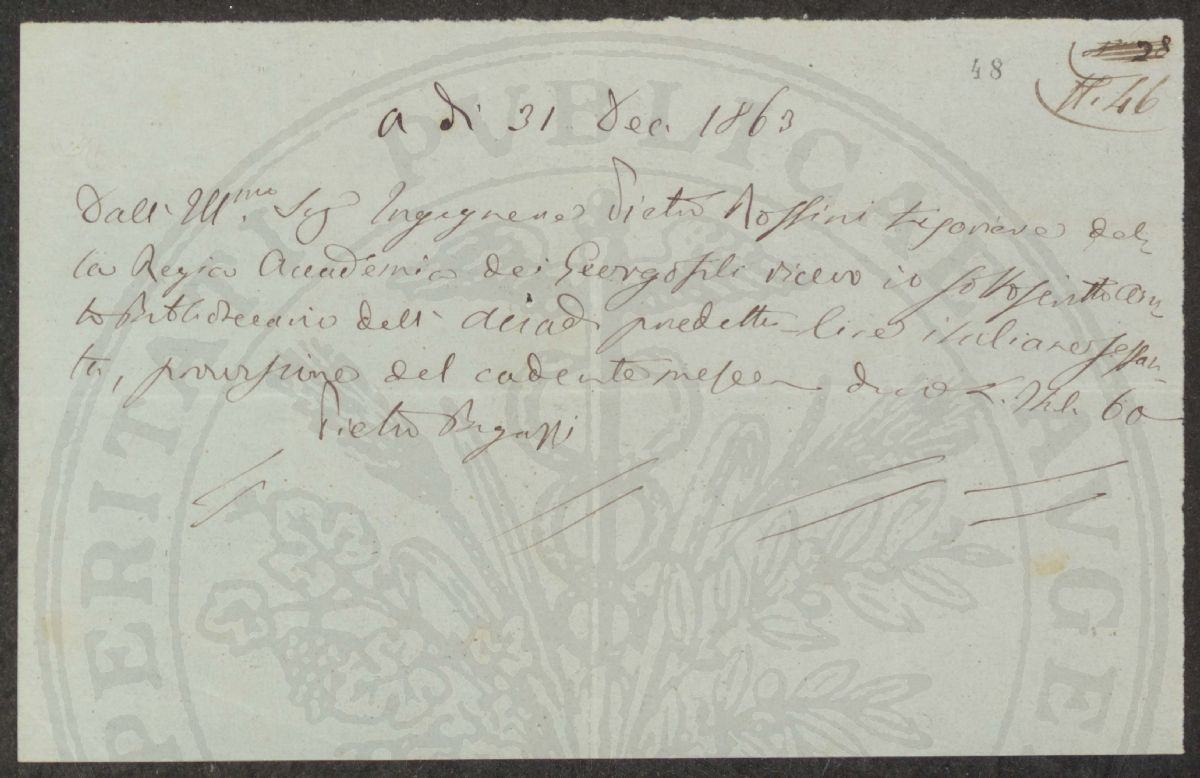 28
48
N. 46
a dì 31 Dec. 1863
Dall' Ill.mo Sig Ingegnere Pietro Rossini Tesoriere del=
la Regia Accademia dei Georgofili ricevo io sottoscritto
to Bibliotecario dell' Accad. predetta lire italiane sessan=
ta, provvisione del cadente mese dico L. Ital. 60
Pietro Bigazzi
PERITATI PVBLICAE AVGE